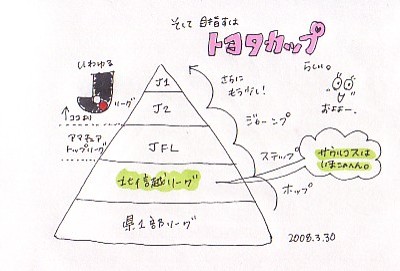 そして目指すは
トヨタカップ
らしい。
いわゆる
J
リーグ
ココより
アマチュア
トップリーグ
J1
J2
JFL
北信越リーグ
県1部リーグ
さらに
もう少し!
ジャーンプ
ステップ
ホップ
およよー。
サウルコスは
いまこのへん。
2008.3.30